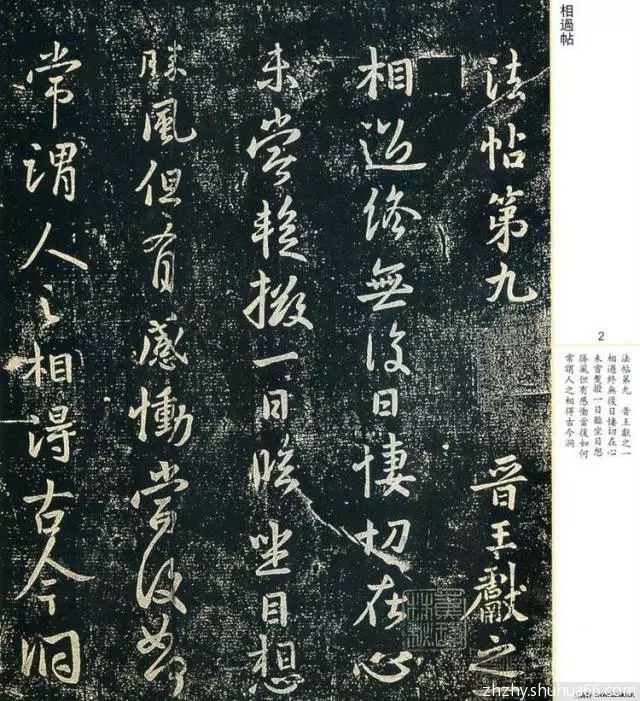 相過帖
法帖第九 晋王獻之
相過終無復日悽切在心
未嘗暫掇一日臨坐目想
勝風但有感慟當復如何
常謂人之相得古今洞
2
法帖第九 晋王獻之一
相過終無復日悽切在心
未嘗暫掇一日臨坐目想
勝風但有感慟當復如何
常謂人之相得古今洞
zhzhy.shuhua66.com